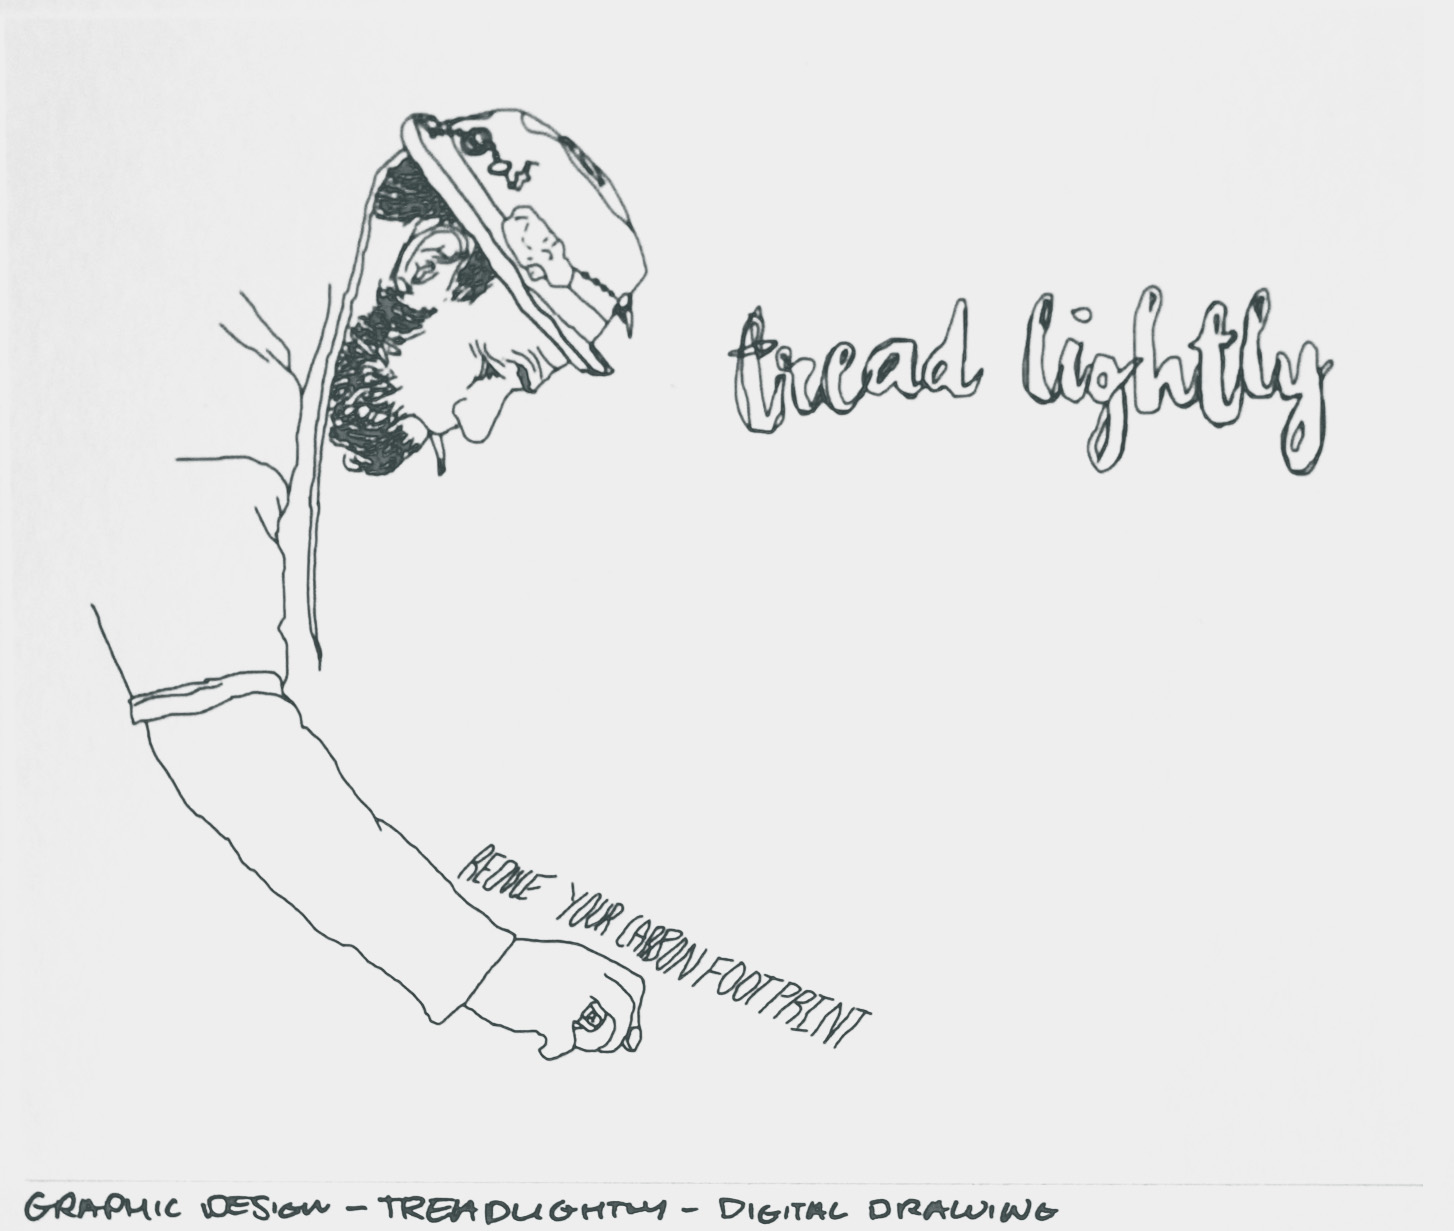 tread lightly
REDUCE YOUR CARBON FOOTPRINT
GRAPHIC DESIGN - TREADLIGHTLY - DIGITAL DRAWING